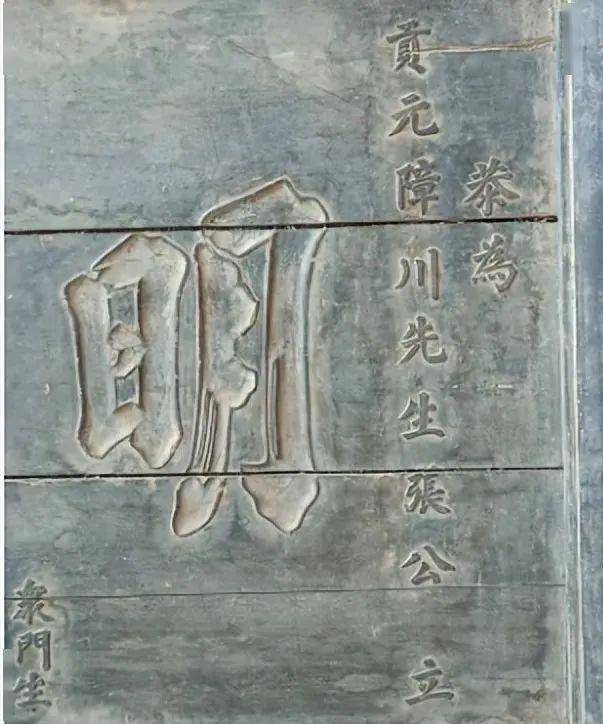 恭為
貢元障川先生張公 立
明
衆門生